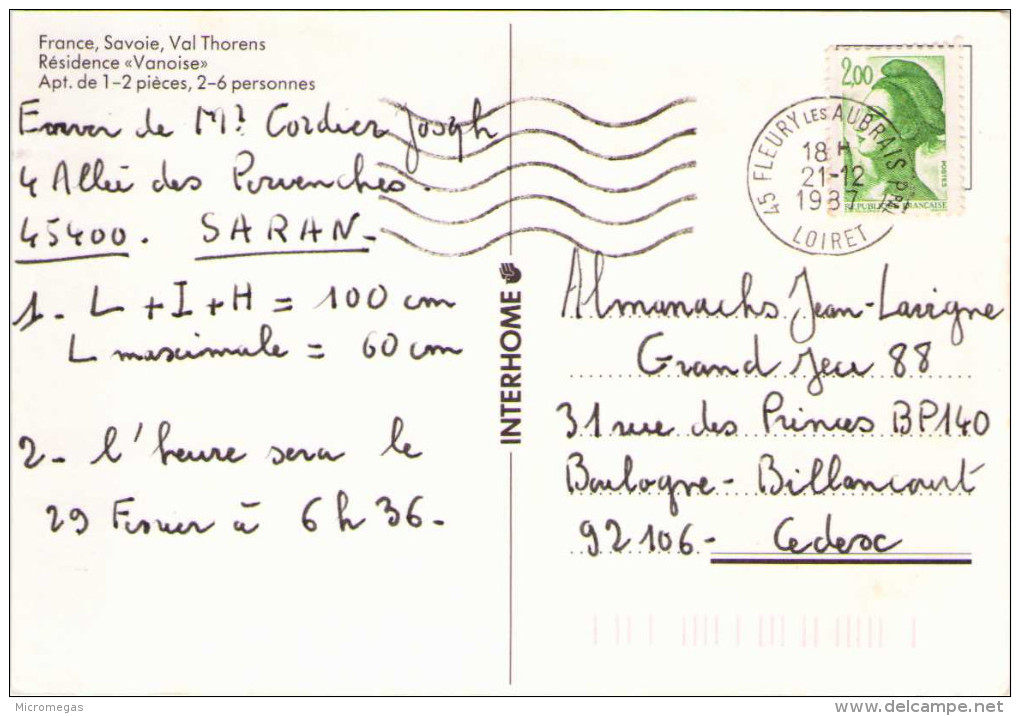 France, Savoie, Val Thorens
Résidence «Vanoise»
Apt. de 1–2 pièces, 2–6 personnes
Envoi de Mr Cordier Joseph
4 Allée des Pervenches.
45400. SARAN_
1_ L + I + H = 100 cm
L maximale = 60 cm
2_ l'heure sera le
29 Fevrier à 6 h 36_
INTERHOME
2,00
POSTES
REPUBLIQUE FRANCAISE
45 FLEURY LES AUBRAIS PPAL
18 H
21-12
1987
LOIRET
Almanachs Jean-Lavigne
Grand Jeu 88
31 rue des Princes BP140
Boulogne-Billancourt
92106- Cedex
Micromegas
www.delcampe.net